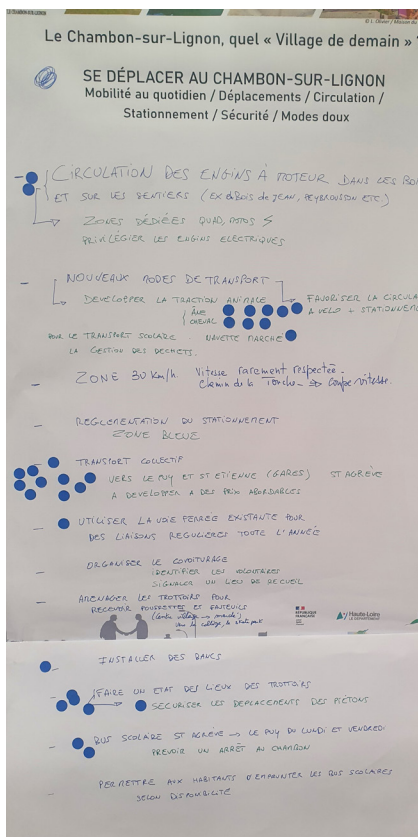 Le Chambon-sur-Lignon, quel « Village de demain »
SE DÉPLACER AU CHAMBON-SUR-LIGNON
Mobilité au quotidien / Déplacements / Circulation /
Stationnement / Sécurité / Modes doux
- CIRCULATION DES ENGINS À MOTEUR DANS LES BOI
ET SUR LES SENTIERS (EX BOIS DE JEAN, PEYBROUSSON ETC)
ZONES DÉDIÉES QUAD, MOTOS
PRIVILÉGIER LES ENGINS ELECTRIQUES
- NOUVEAUX MODES DE TRANSPORT
DEVELOPPER LA TRACTION ANIMALE
ÂNE
CHEVAL
FAVORISER LA CIRCULA
A VELO + STATIONNEM
POUR LE TRANSPORT SCOLAIRE - NAVETTE MARCHÉ
LA GESTION DES DECHETS.
- ZONE 30 Km/h. Vitesse rarement respectée.
Chemin de la -> coupe vitesse.
- REGLEMENTATION DU STATIONNEMENT
ZONE BLEUE
- TRANSPORT COLLECTIF
VERS LE PUY ET ST ETIENNE (GARES) ST AGRÈVE
A DEVELOPPER A DES PRIX ABORDABLES
- UTILISER LA VOIE FERREE EXISTANTE POUR
DES LIAISONS REGULIERES TOUTE L'ANNÉE
- ORGANISER LE COVOITURAGE
IDENTIFIER LES VOLONTAIRES
SIGNALER UN LIEU DE RECUEIL
- AMENAGER LES TROTTOIRS POUR
RECEVOIR POUSSETTES ET FAUTEUILS
(Centre village -> marché)
le collège, le skate park
RÉPUBLIQUE
FRANÇAISE
Haute-Loire
LE DÉPARTEMENT
- INSTALLER DES BANCS
- FAIRE UN ETAT DES LIEUX DES TROTTOIRS
SECURISER LES DEPLACEMENTS DES PIÉTONS
- BUS SCOLAIRE ST AGRÈVE -> LE PUY DU LUNDI ET VENDREDI
PREVOIR UN ARRÊT AU CHAMBON
- PERMETTRE AUX HABITANTS D'EMPRUNTER LES BUS SCOLAIRES
SELON DISPONIBILITÉ